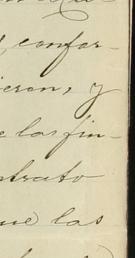 confor-
ieron, y
e las fin-
trato
que las